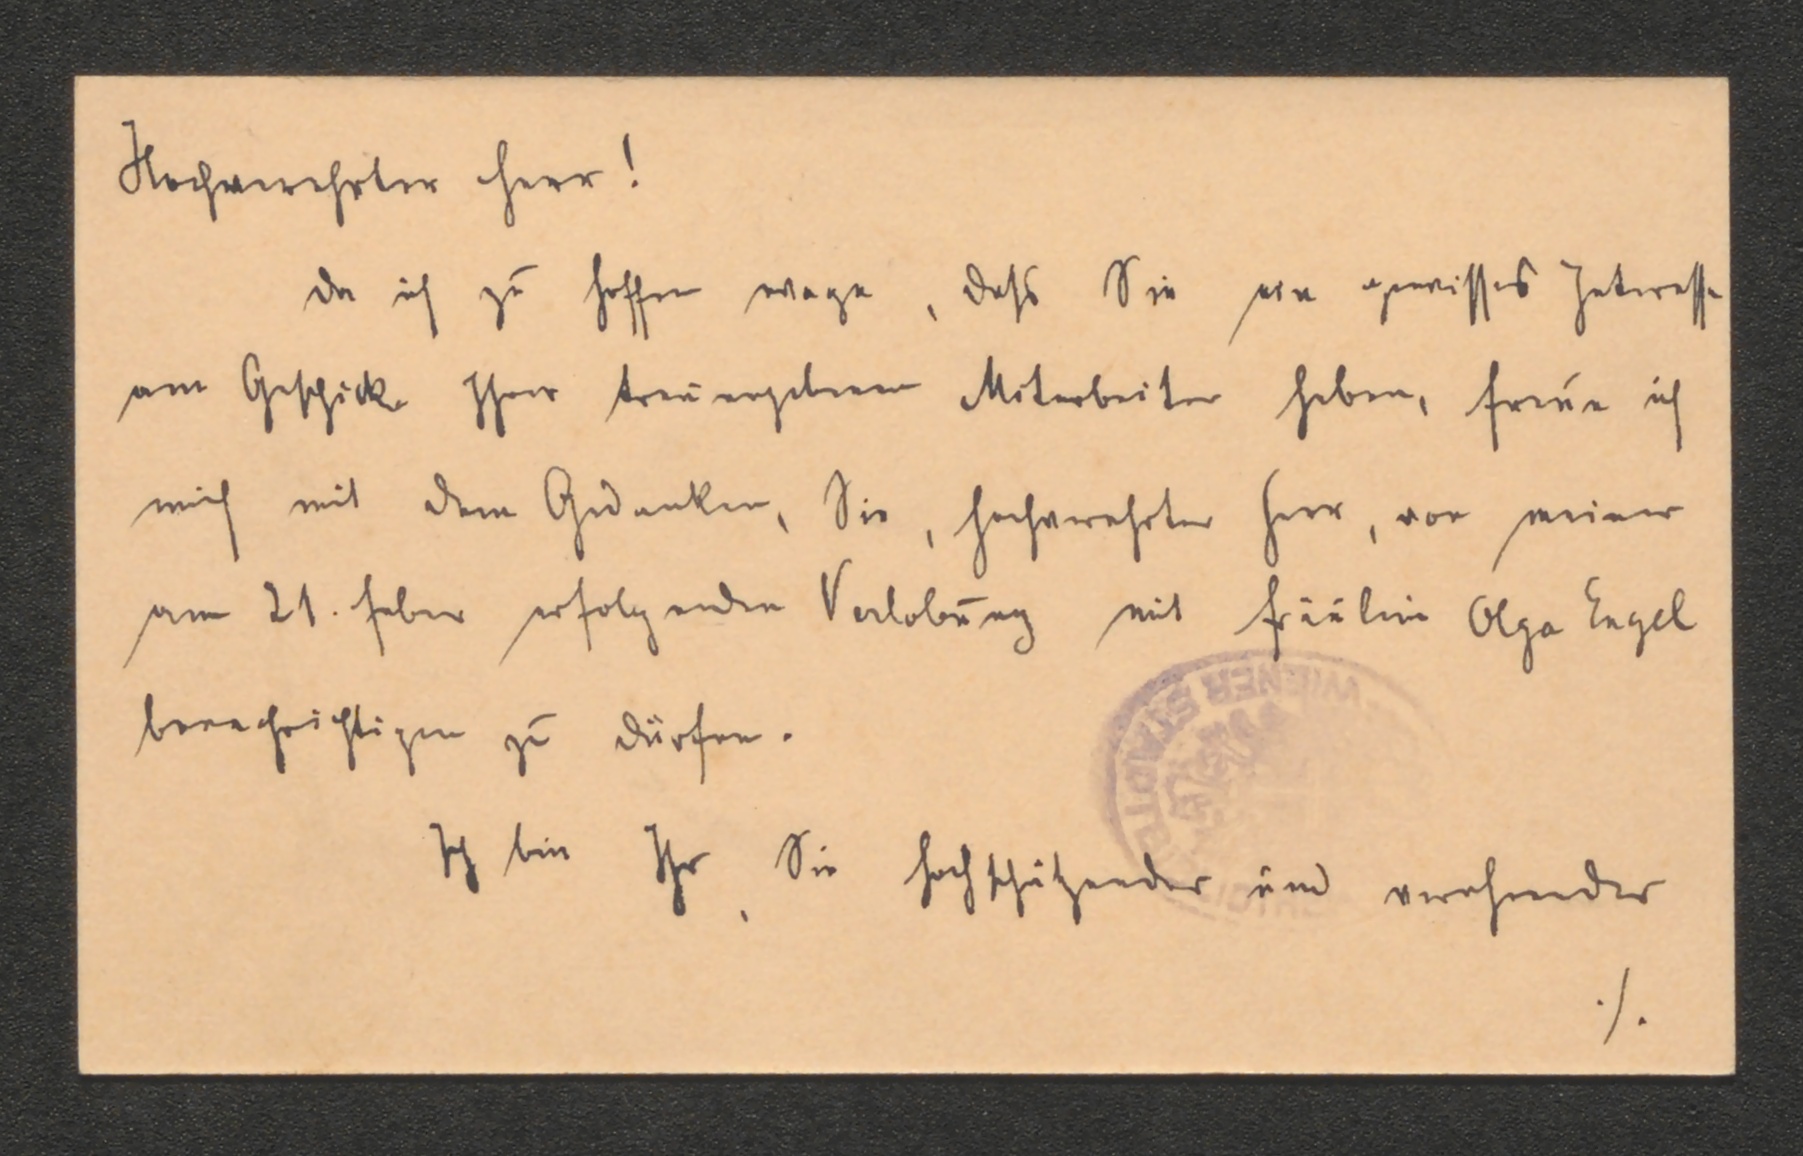 Hochverehrter Herr!
da ich zu hoffen wage, dass Sie ein gewisses Interesse
am Geschicke Ihrer treuergebenen Mitarbeiter haben, freue ich
mich mit dem Gedanken, Sie, hochverehrter Herr, von meiner
am 21. feber erfolgenden Verlobung mit Fräulein Olga Engel
benachrichtigen zu dürfen.
Ich bin Ihr, Sie hochschätzender und verehrender
./.
WIENER STADTBI